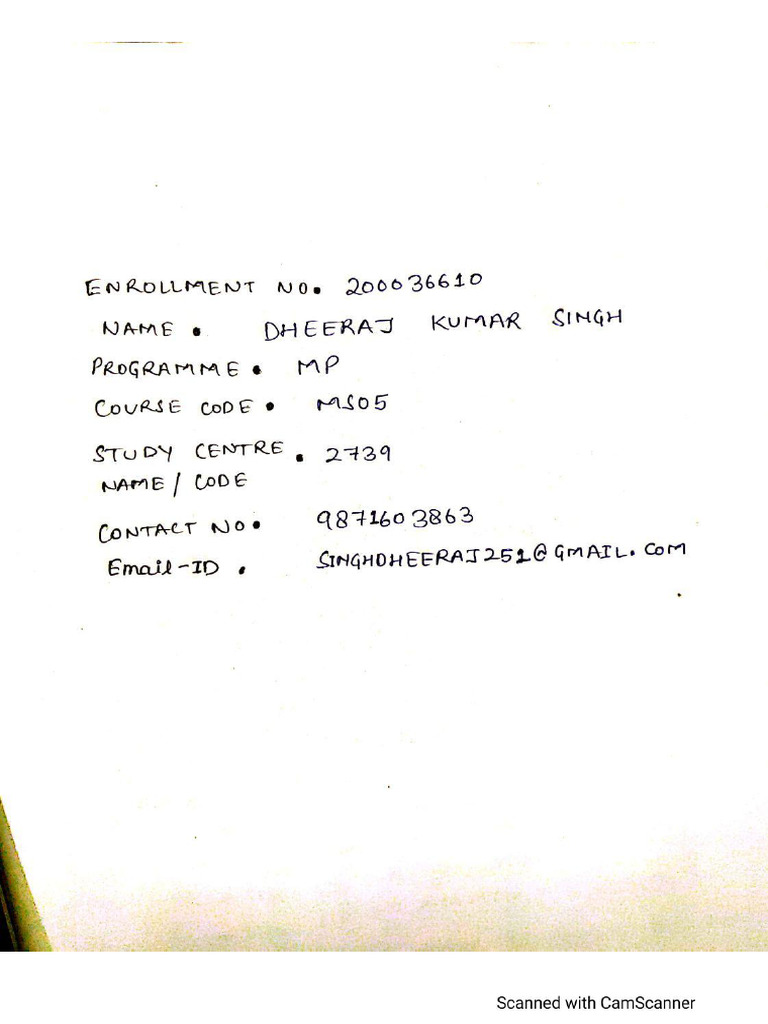 ENROLLMENT NO. 200036610
NAME . DHEERAJ KUMAR SINGH
PROGRAMME . MP
COURSE CODE . MS05
STUDY CENTRE . 2739
NAME / CODE
CONTACT NO. 9871603863
Email-ID . SINGHDHEERAJ251@GMAIL.COM
Scanned with CamScanner